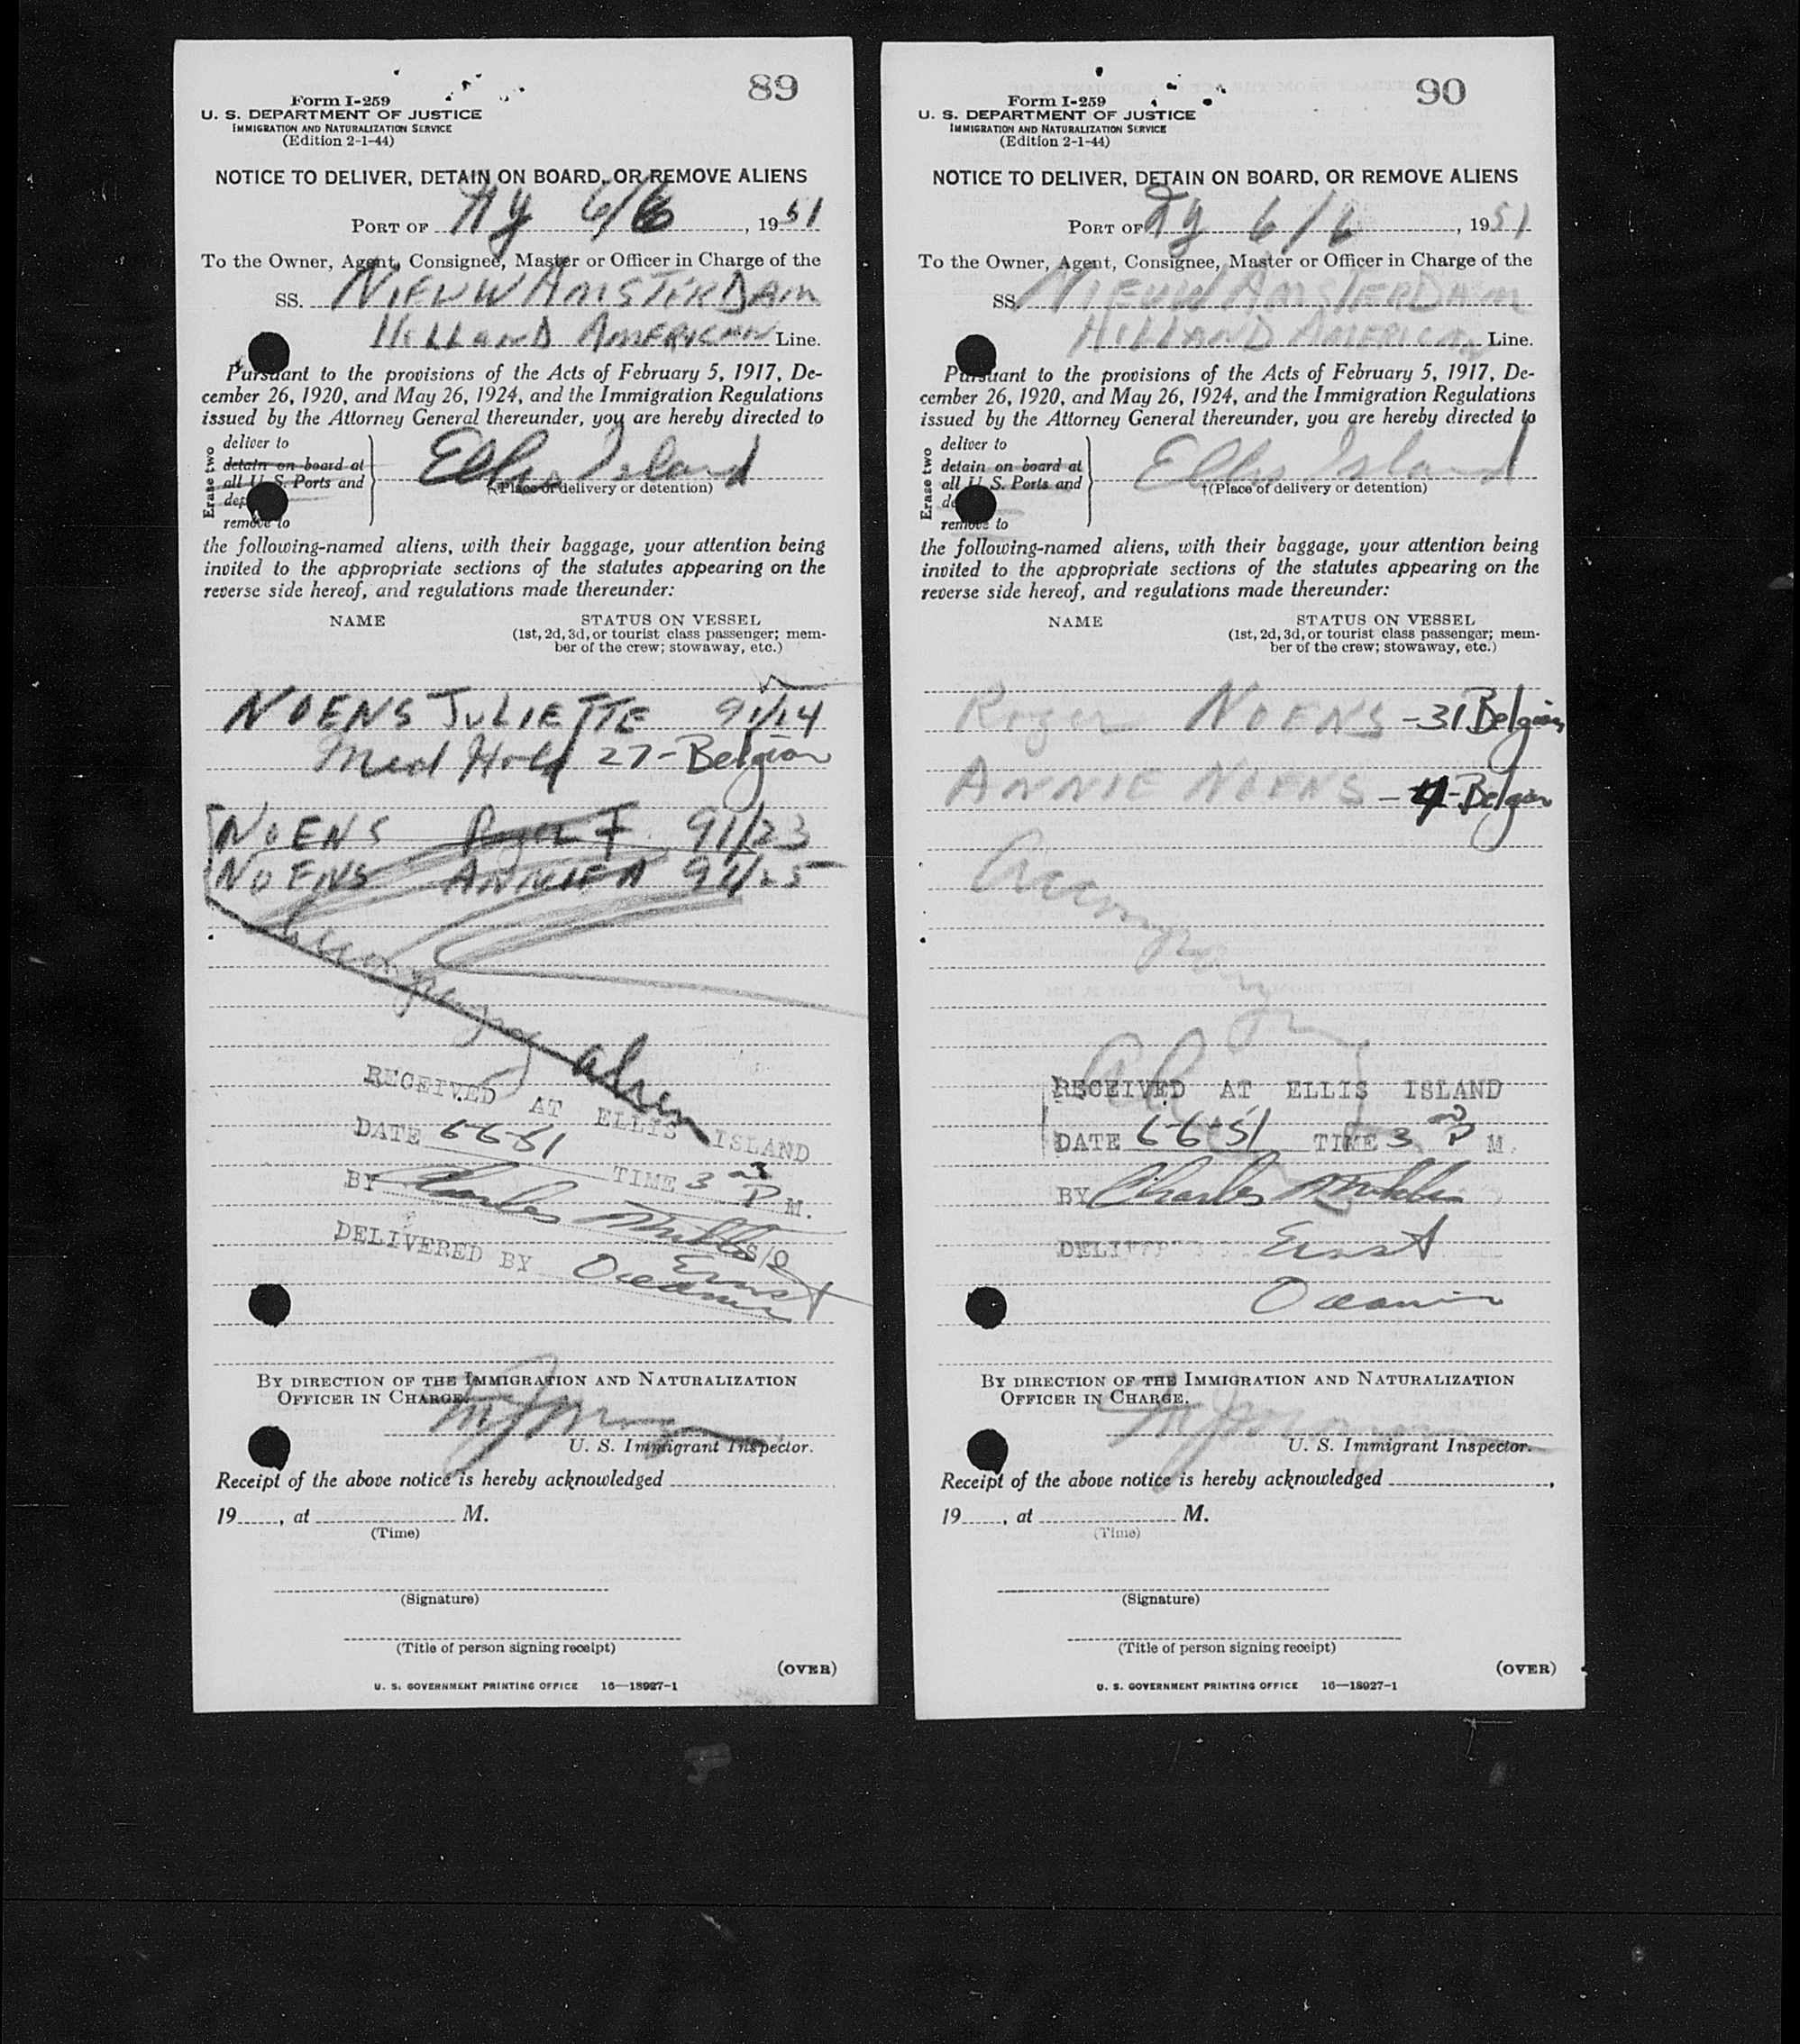 89
Form I-259
U. S. DEPARTMENT OF JUSTICE
IMMIGRATION AND NATURALIZATION SERVICE
(Edition 2-1-44)
NOTICE TO DELIVER, DETAIN ON BOARD, OR REMOVE ALIENS
PORT OF NY 6/6, 1951
To the Owner, Agent, Consignee, Master or Officer in Charge of the
SS. NIEUW AMSTERDAM
HOLLAND AMERICAN Line.
Pursuant to the provisions of the Acts of February 5, 1917, De-
cember 26, 1920, and May 26, 1924, and the Immigration Regulations
issued by the Attorney General thereunder, you are hereby directed to
Erase two
deliver to
detain on board at
all U. S. Ports and
remove to
Ellis Island
(Place of delivery or detention)
the following-named aliens, with their baggage, your attention being
invited to the appropriate sections of the statutes appearing on the
reverse side hereof, and regulations made thereunder:
NAME STATUS ON VESSEL
(1st, 2d, 3d, or tourist class passenger; mem-
ber of the crew; stowaway, etc.)
NOENS JULIETTE 91/24
Med Hold 27-Belgian
NOENS Roger F 91/23
NOENS ANNIE A 91/25
Accompanying alien
RECEIVED AT ELLIS ISLAND
DATE 6-6-51 TIME 3 P M.
BY Charles
DELIVERED BY Ernst
Oceanic
BY DIRECTION OF THE IMMIGRATION AND NATURALIZATION
OFFICER IN CHARGE.
U. S. Immigrant Inspector.
Receipt of the above notice is hereby acknowledged
19, at M.
(Time)
(Signature)
(Title of person signing receipt)
(OVER)
U. S. GOVERNMENT PRINTING OFFICE 16—18927-1
90
Form I-259
U. S. DEPARTMENT OF JUSTICE
IMMIGRATION AND NATURALIZATION SERVICE
(Edition 2-1-44)
NOTICE TO DELIVER, DETAIN ON BOARD, OR REMOVE ALIENS
PORT OF NY 6/6, 1951
To the Owner, Agent, Consignee, Master or Officer in Charge of the
SS. NIEUW AMSTERDAM
HOLLAND AMERICAN Line.
Pursuant to the provisions of the Acts of February 5, 1917, De-
cember 26, 1920, and May 26, 1924, and the Immigration Regulations
issued by the Attorney General thereunder, you are hereby directed to
Erase two
deliver to
detain on board at
all U. S. Ports and
remove to
Ellis Island
†(Place of delivery or detention)
the following-named aliens, with their baggage, your attention being
invited to the appropriate sections of the statutes appearing on the
reverse side hereof, and regulations made thereunder:
NAME STATUS ON VESSEL
(1st, 2d, 3d, or tourist class passenger; mem-
ber of the crew; stowaway, etc.)
Roger NOENS - 31 Belgian
ANNIE NOENS - 4 - Belgian
Accompanying
RECEIVED AT ELLIS ISLAND
DATE 6-6-51 TIME 3 P M.
BY Charles
Ernst
Oceanic
BY DIRECTION OF THE IMMIGRATION AND NATURALIZATION
OFFICER IN CHARGE.
U. S. Immigrant Inspector.
Receipt of the above notice is hereby acknowledged ,
19, at M.
(Time)
(Signature)
(Title of person signing receipt)
(OVER)
U. S. GOVERNMENT PRINTING OFFICE 16—18927-1